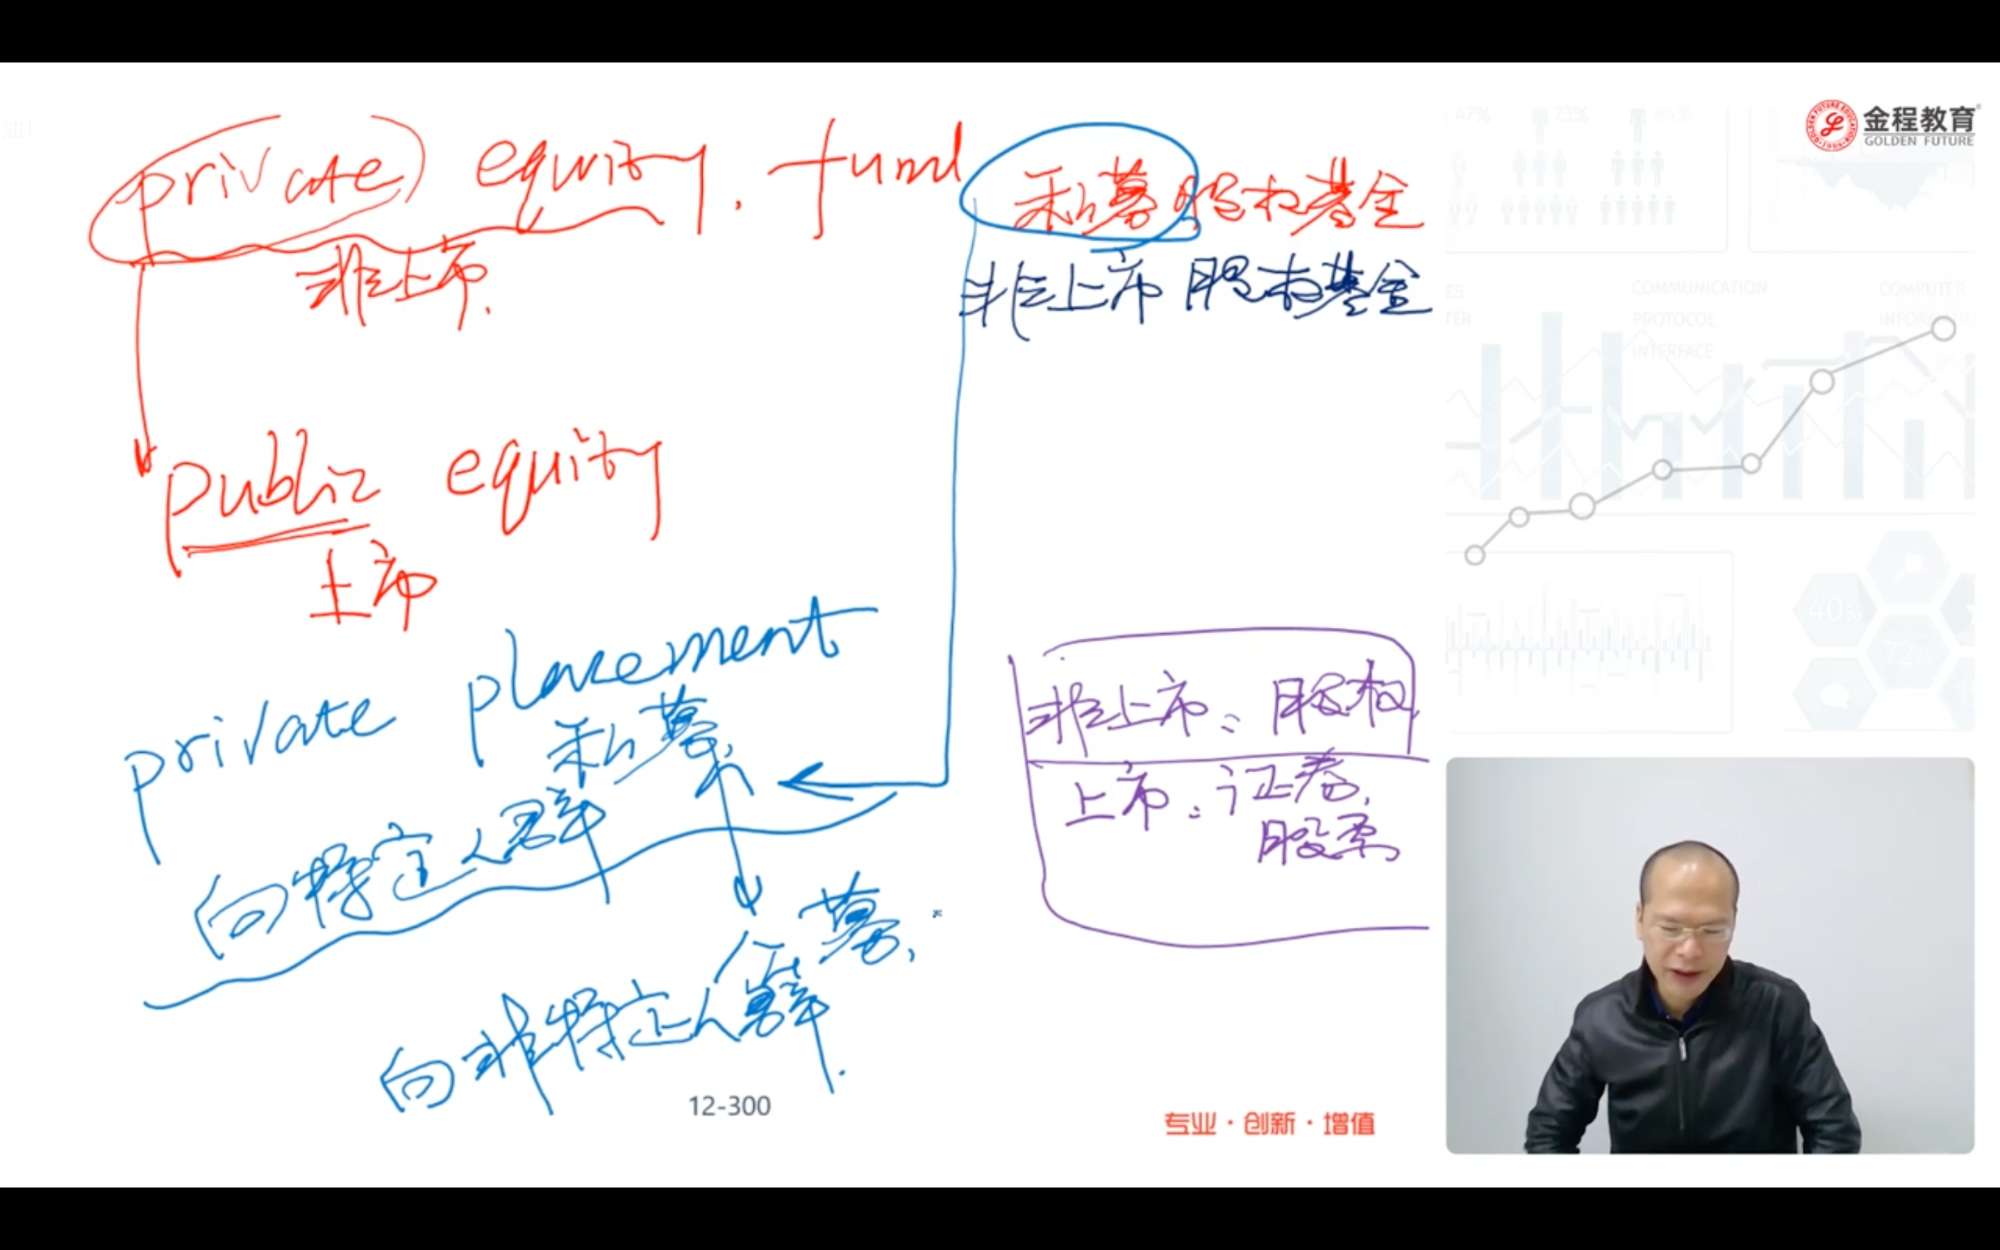 private equity. fund 私募股权基金
非上市.
非上市 股权基金
public equity
上市
private placement
私募
向特定人群
公募.
向非特定人群.
非上市: 股权
上市: 证券,
股票
12-300
专业·创新·增值
金程教育
GOLDEN FUTURE
COMMUNICATION
PROTOCOL
INTERFACE
COMPUTER
73%
40%
72%